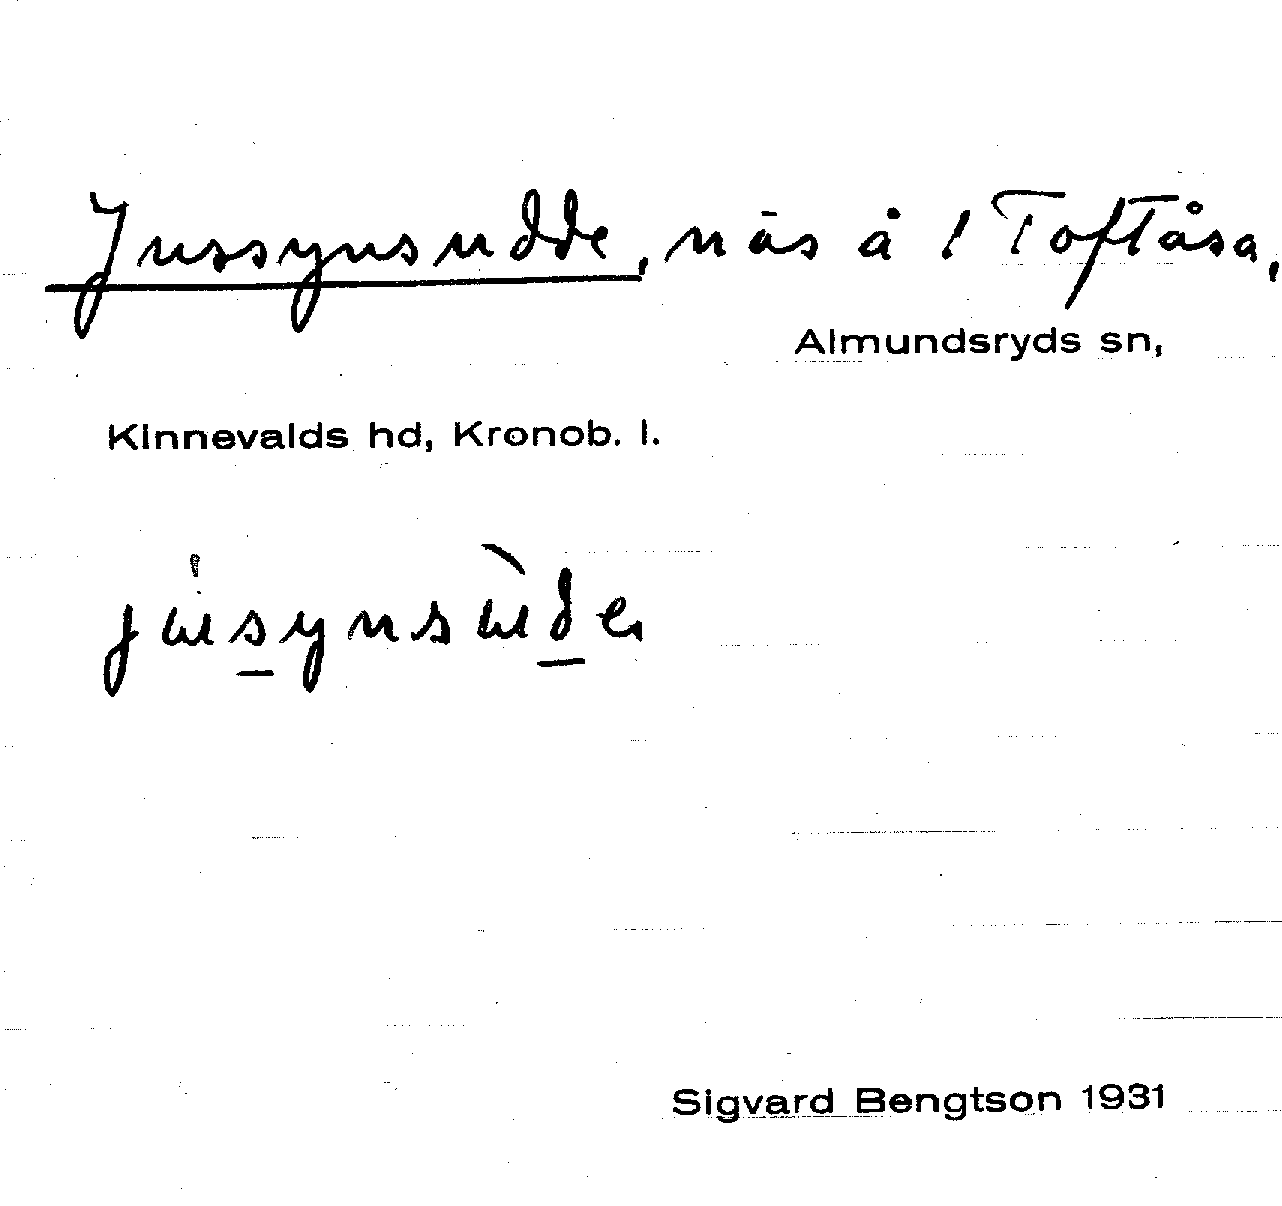 Jussynsudde, näs å 1 Toftåsa,
Almundsryds sn,
Kinnevalds hd, Kronob. l.
jusynsùde
Sigvard Bengtson 1931